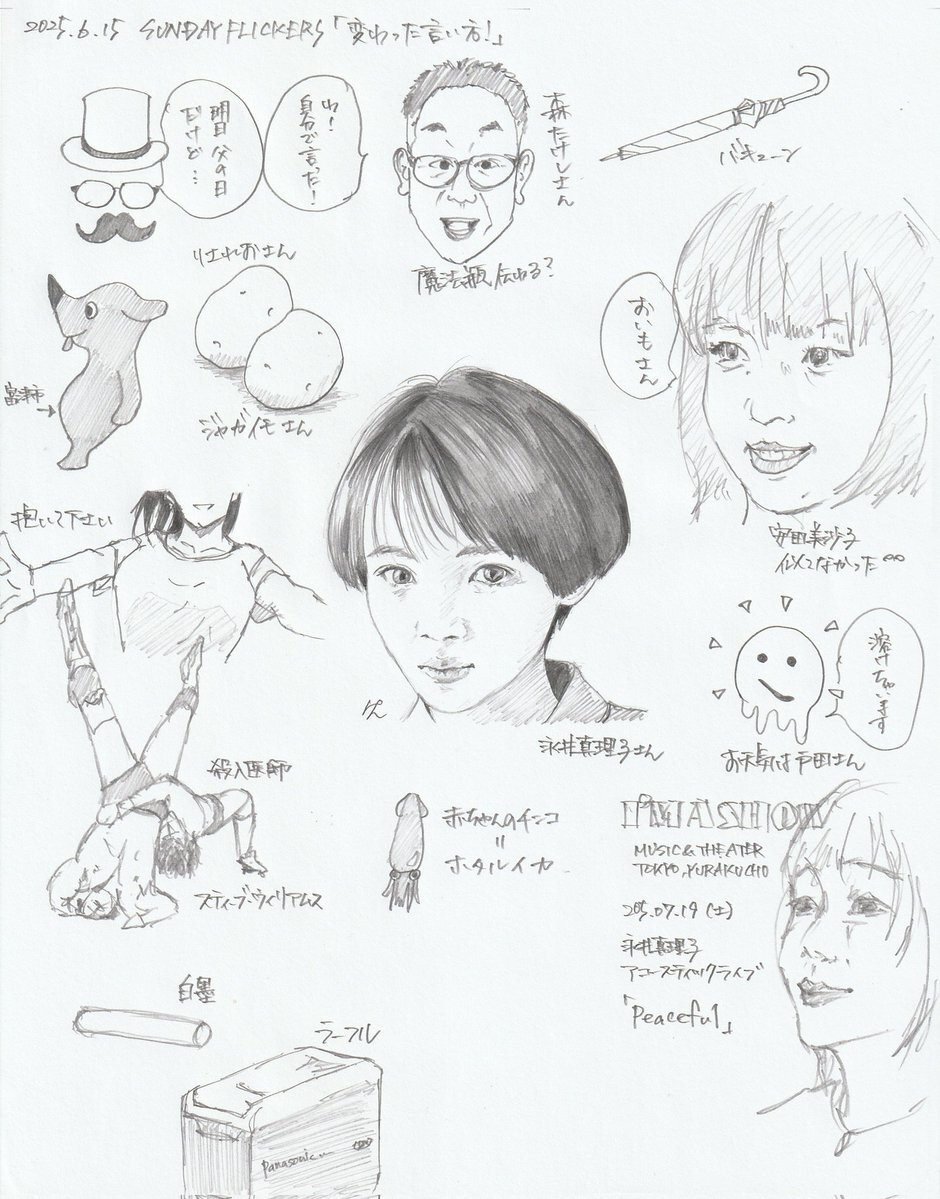 2025.6.15 SUNDAY FLICKERS「変わった言い方！」
明日
父の日
だけど…
わ！
自分で言った！
森たけしさん
バキューン
りされおさん
魔法瓶伝わる？
おいもさん
富津市
ジャガイモさん
抱いて下さい
安田美沙子
似てなかった
溶けちゃいます
けん
永井真理子さん
お天気は戸田さん
殺人医師
スティーブ・ウィリアムス
赤ちゃんのチンコ
=
ホタルイカ
I'M A SHOW
MUSIC & THEATER
TOKYO, YURAKUCHO
205.07.19(土)
永井真理子
アコースティックライブ
「Peaceful」
白墨
ラーフル
Panasonic